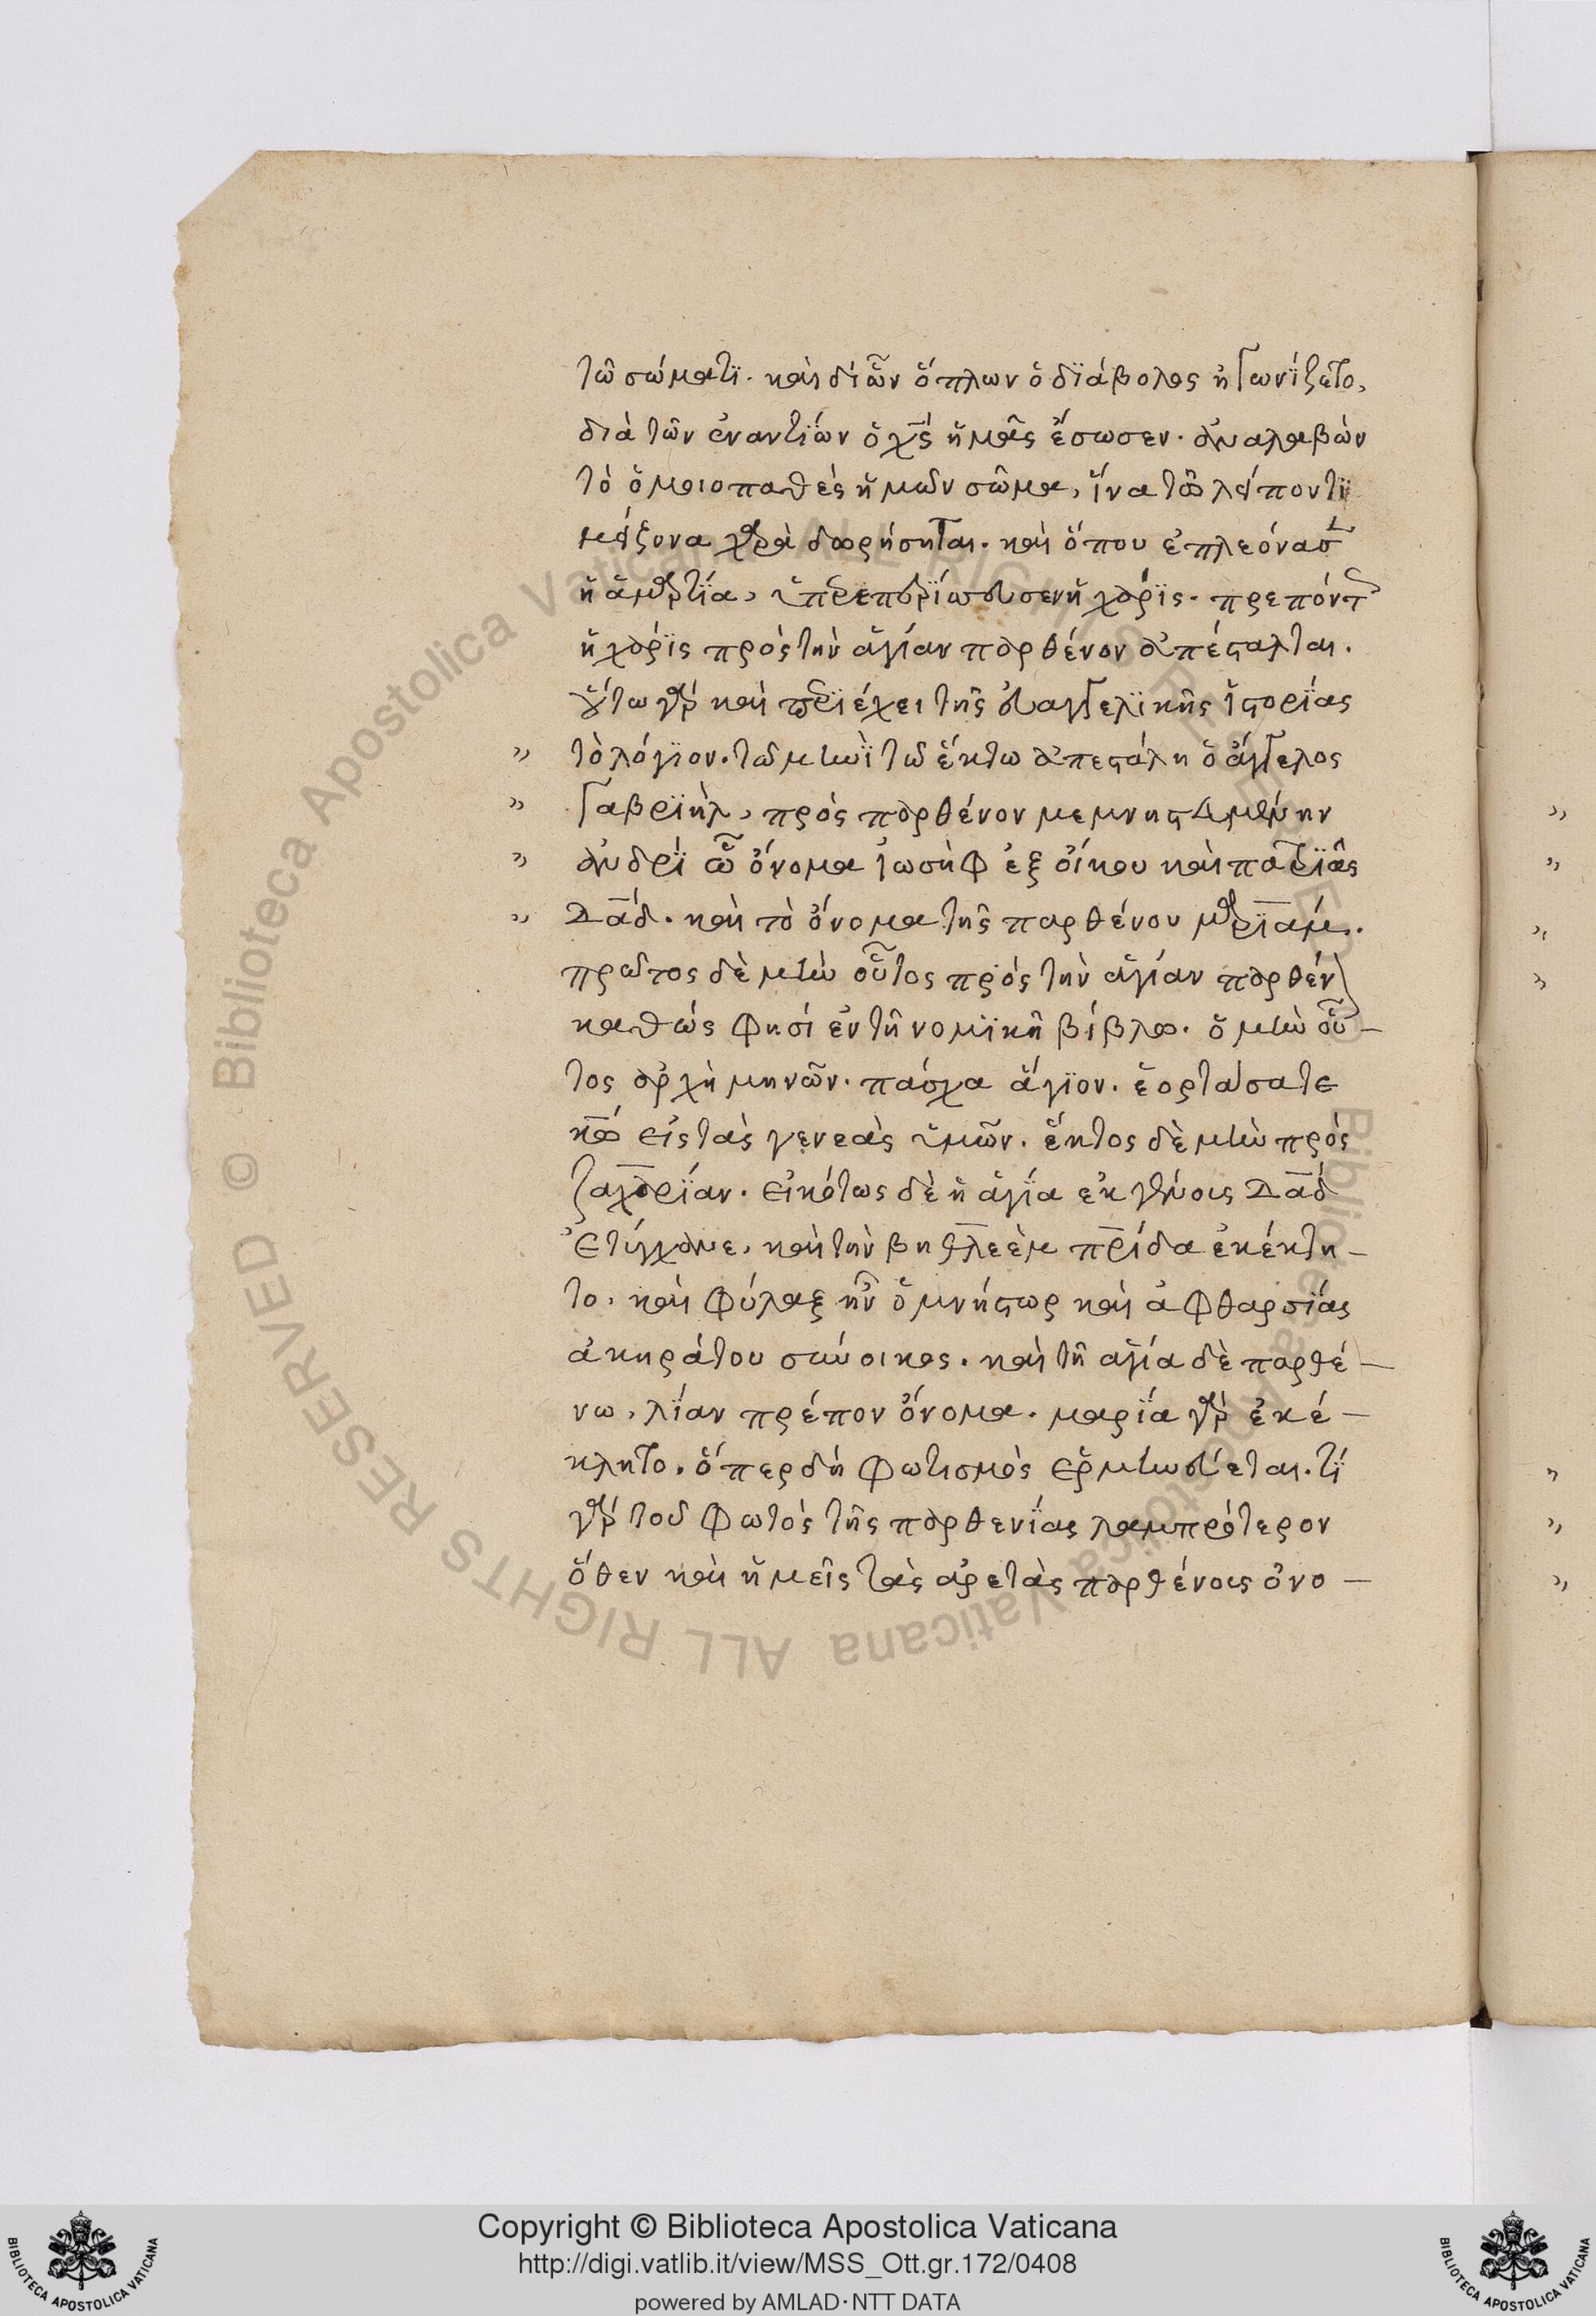 τῶ σώματϊ. καὶ δι' ὧν ὅπλων ὁ δϊάβολος ἠγωνΐζετο,
διὰ τῶν ἐναντΐων ὁ χς ἡμᾶς ἔσωσεν. ἀναλαβὼν
τὸ ὁμοιοπαθὲς ἡμῶν σῶμα, ἵνα τῶ λείποντϊ
μείζονα χαρὰ δωρήσηται. καὶ ὅπου ἐπλεόνασ
ἡ ἁμαρτΐα, ὑπερεπερΐσσευσεν ἡ χάρϊς. πρεπόντ
ἡ χάρϊς πρὸς τὴν ἁγΐαν παρθένον ἀπέσταλται.
οὕτω γὰρ καὶ περϊέχει τῆς εὐαγγελϊκῆς ἱστορΐας
" τὸ λόγϊον. τῶ μηνὶ τῶ ἕκτω ἀπεστάλη ὁ ἄγγελος
" Γαβρϊὴλ, πρὸς παρθένον μεμνηστευμένην
" ἀνδρὶ ὧ ὄνομα ἰωσὴφ ἐξ οἴκου καὶ πατρϊᾶς
" Δαδ. καὶ τὸ ὄνομα τῆς παρθένου μαρϊάμ.
πρῶτος δὲ μὴν οὗτος πρὸς τὴν ἁγΐαν παρθέν
καθώς φησί ἐν τῆ νομϊκῆ βίβλω. ὁ μὴν οὗ-
τος ἀρχὴ μηνῶν. πάσχα ἅγϊον. ἑορτάσατε
κω εἰς τὰς γενεὰς ὑμῶν. ἕκτος δὲ μὴν πρὸς
ζαχαρΐαν. εἰκότως δὲ ἡ ἁγΐα ἐκ γένους Δαδ
ἐτύγχανε, καὶ τὴν βηθλεὲμ πρίδα ἐκέκτη-
το. καὶ φύλαξ ἦν ὁ μνήστωρ καὶ ἀφθαρσΐας
ἀκηράτου σύνοικος. καὶ τῆ ἁγΐα δὲ παρθέ-
νω, λΐαν πρέπον ὄνομα. μαρΐα γὰρ ἐκέ-
κλητο. ὅπερ δὴ φωτισμὸς ἑρμηνεύεται. τΐ
γὰρ τοῦ φωτὸς τῆς παρθενΐας λαμπρότερον
ὅθεν καὶ ἡμεῖς τὰς ἀρετὰς παρθένους ὀνο-
Copyright © Biblioteca Apostolica Vaticana
http://digi.vatlib.it/view/MSS_Ott.gr.172/0408
powered by AMLAD·NTT DATA
© Biblioteca Apostolica Vaticana ALL RIGHTS RESERVED
© Biblioteca Apostolica Vaticana ALL RIGHTS RESERVED
BIBLIOTECA APOSTOLICA VATICANA
BIBLIOTECA APOSTOLICA VATICANA